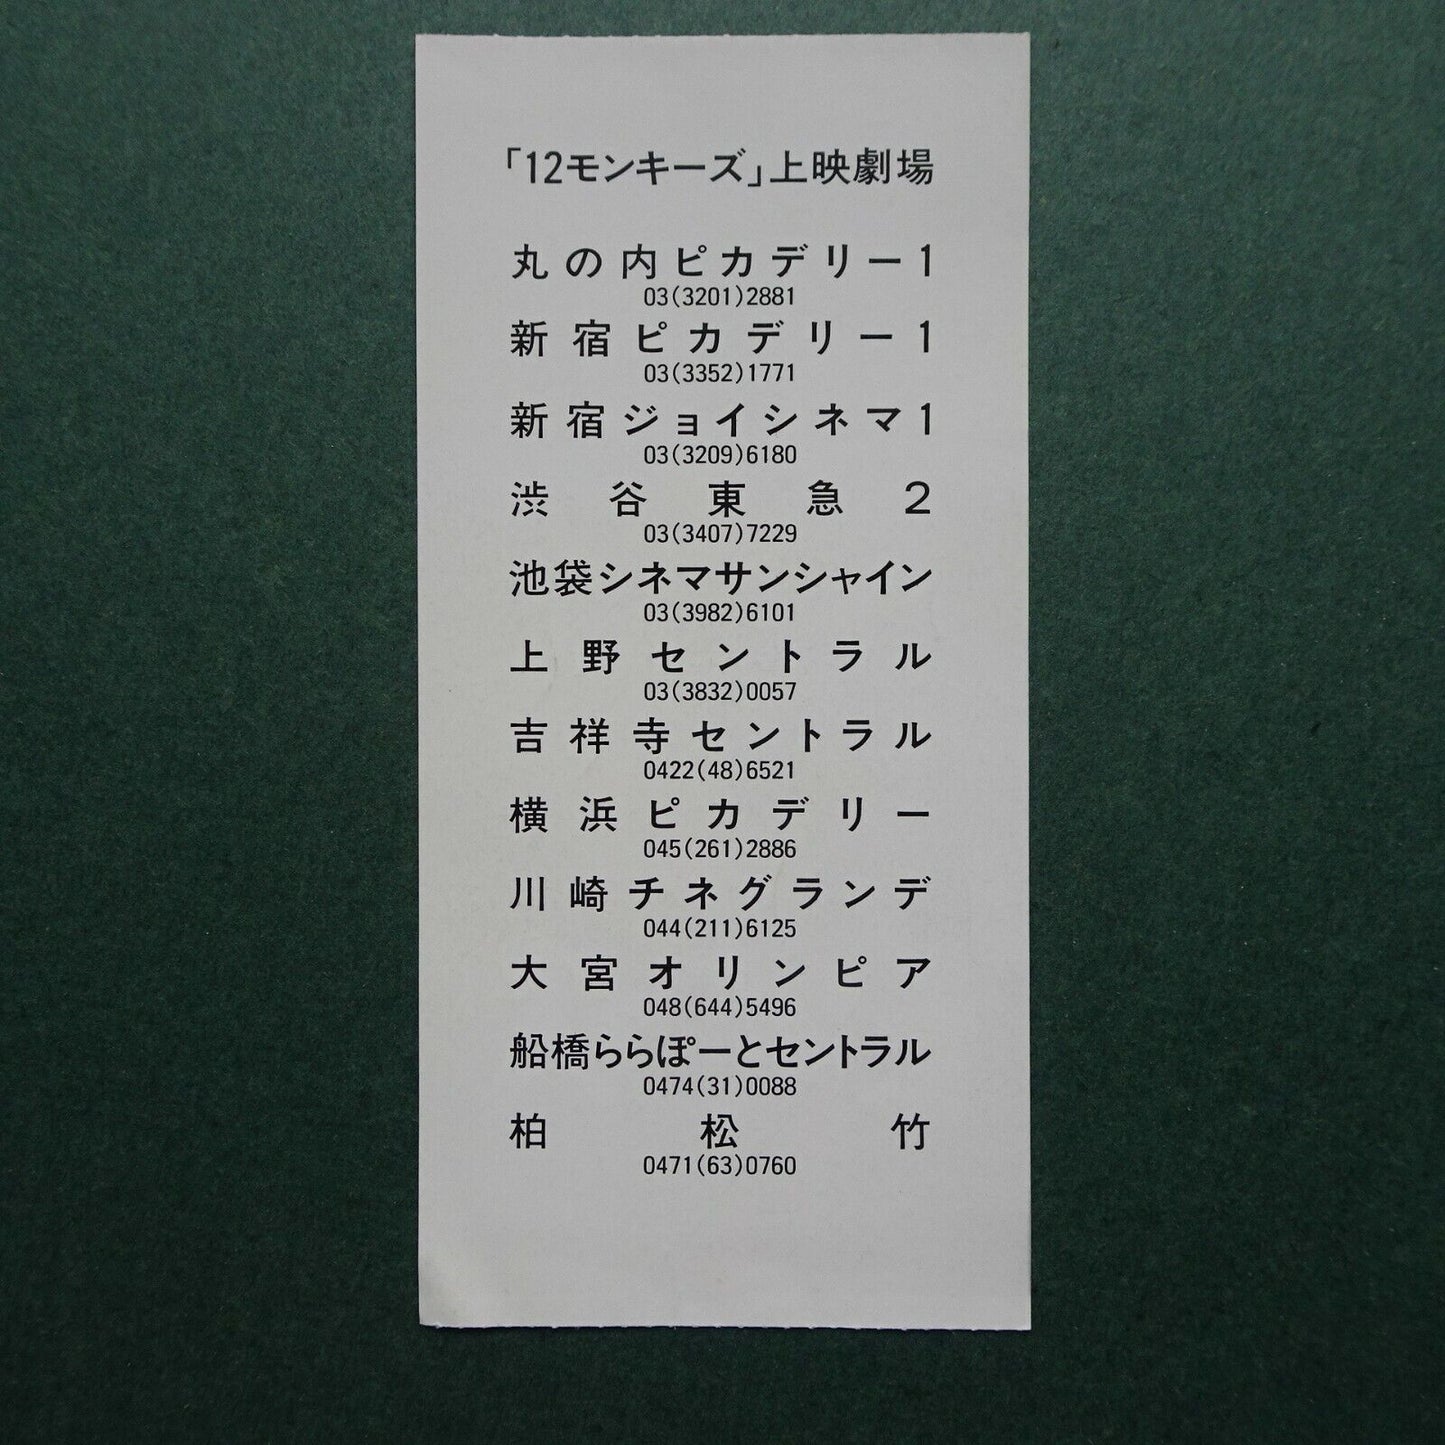 「12モンキーズ」上映劇場
丸の内ピカデリー1
03(3201)2881
新宿ピカデリー1
03(3352)1771
新宿ジョイシネマ1
03(3209)6180
渋谷東急2
03(3407)7229
池袋シネマサンシャイン
03(3982)6101
上野セントラル
03(3832)0057
吉祥寺セントラル
0422(48)6521
横浜ピカデリー
045(261)2886
川崎チネグランデ
044(211)6125
大宮オリンピア
048(644)5496
船橋ららぽーとセントラル
0474(31)0088
柏松竹
0471(63)0760